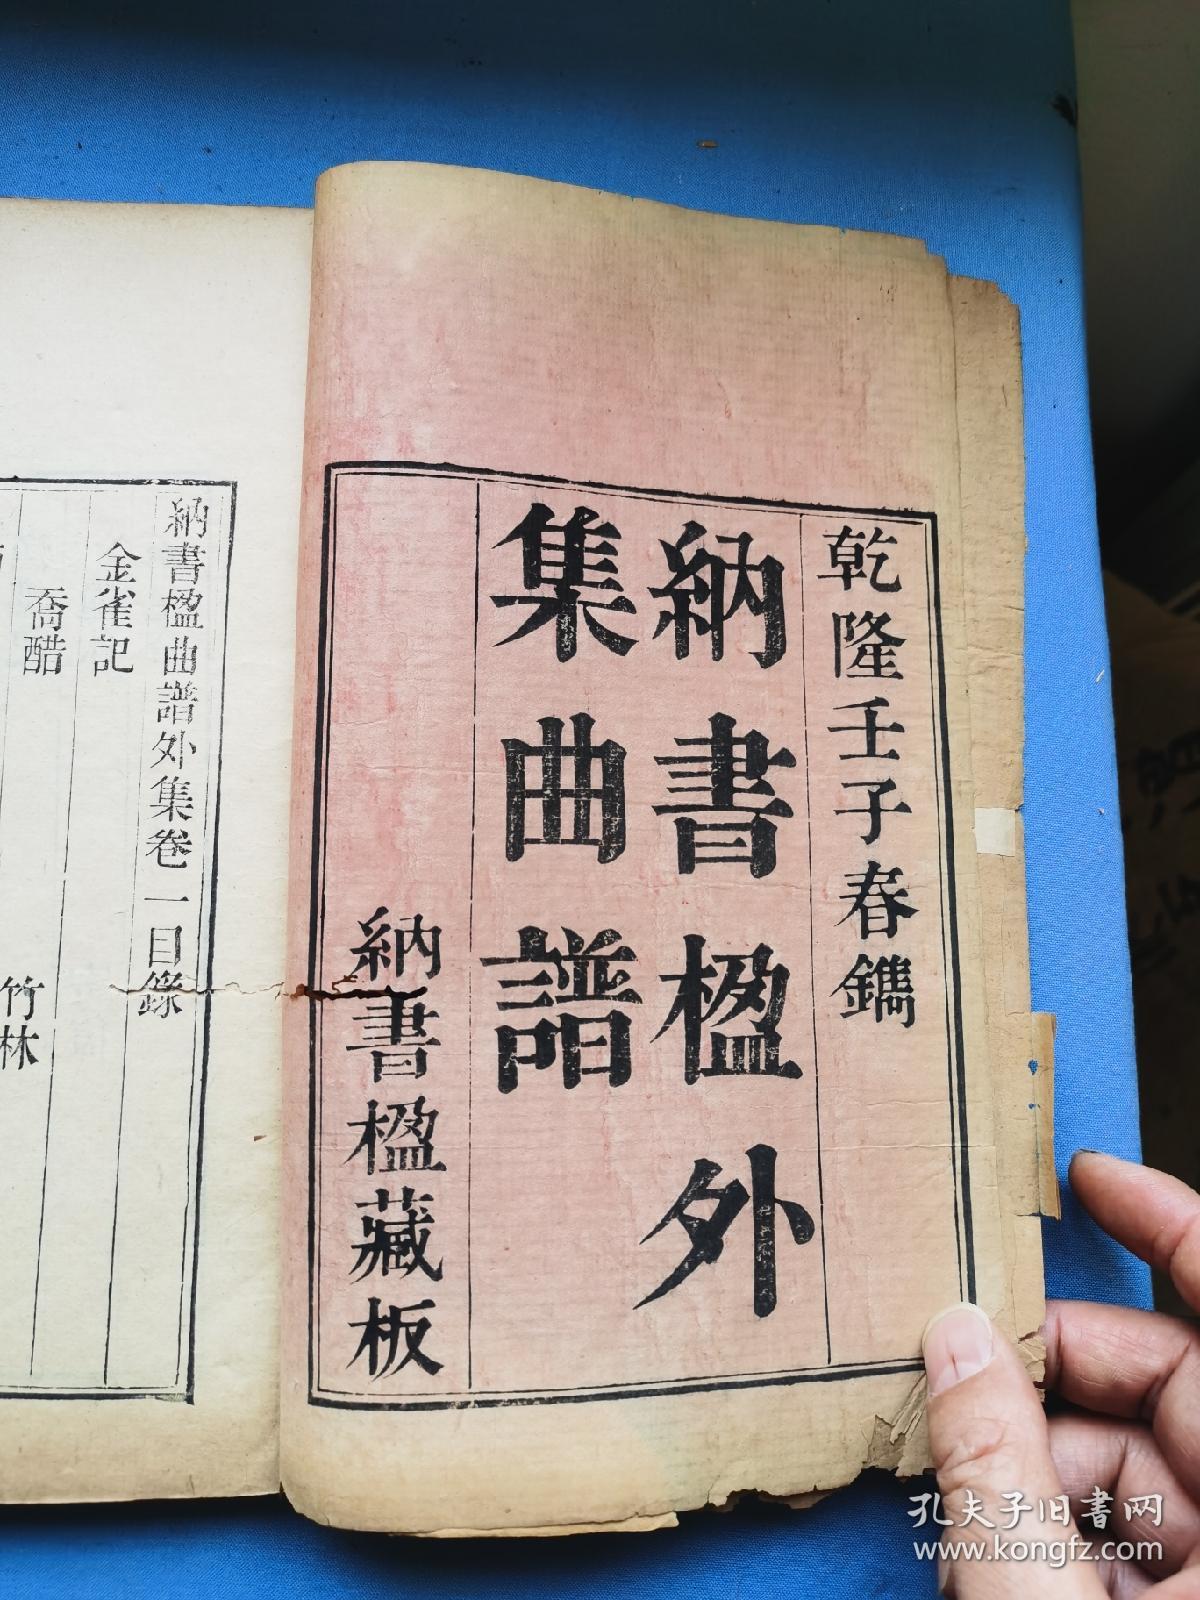 乾隆壬子春鐫
納書楹外
集曲譜
納書楹藏板
納書楹曲譜外集卷一目錄
金雀記
喬醋
竹林
孔夫子旧书网
www.kongfz.com